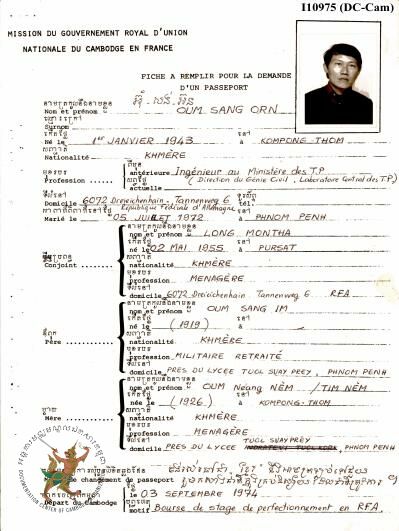 I10975 (DC-Cam)
MISSION DU GOUVERNEMENT ROYAL D'UNION
NATIONALE DU CAMBODGE EN FRANCE
FICHE A REMPLIR POUR LA DEMANDE
D'UN PASSEPORT
នាមត្រកូលនិងនាមខ្លួន
Nom et prénom OUM SANG ORN
ឈ្មោះក្រៅ
Surnom
កើតថ្ងៃ នៅ
Né le 1er JANVIER 1943 à KOMPONG-THOM
សញ្ជាតិ
Nationalité KHMÈRE
មុខរបរ
Profession antérieure Ingénieur au Ministère des T.P
(Direction du Génie Civil, Laboratoire Central des T.P)
actuelle
ទីលំនៅ
Domicile 6072 Dreieichenhain - Tannenweg 6 tél.
République Fédérale d'Allemagne
Marié le 05 JUILLET 1972 à PHNOM PENH
នាមត្រកូលនិងនាមខ្លួន
nom et prénom LONG MONTHA
កើតថ្ងៃ នៅ
né le 02 MAI 1955 à PURSAT
សញ្ជាតិ
Conjoint nationalité KHMÈRE
មុខរបរ
profession MENAGÈRE
ទីលំនៅ
domicile 6072 Dreieichenhain Tannenweg 6 RFA
នាមត្រកូលនិងនាមខ្លួន
nom et prénom OUM SANG IM
កើតថ្ងៃ នៅ
né le (1919) à
ឪពុក សញ្ជាតិ
Père nationalité KHMÈRE
មុខរបរ
profession MILITAIRE RETRAITÉ
ទីលំនៅ
domicile PRES DU LYCEE TUOL SUAY PREY, PHNOM PENH
នាមត្រកូលនិងនាមខ្លួន
nom et prénom OUM Neang NÈM / TIM NÈM
កើតថ្ងៃ នៅ
né le (1926) à KOMPONG-THOM
ម្តាយ សញ្ជាតិ
Mère nationalité KHMÈRE
មុខរបរ
profession MENAGÈRE
ទីលំនៅ TUOL SUAY PREY
domicile PRES DU LYCEE PHNOM PENH
de changement de passeport
Départ du Cambodge le 03 SEPTEMBRE 1974
motif Bourse de stage de perfectionnement en RFA.
DOCUMENTATION CENTER OF CAMBODIA